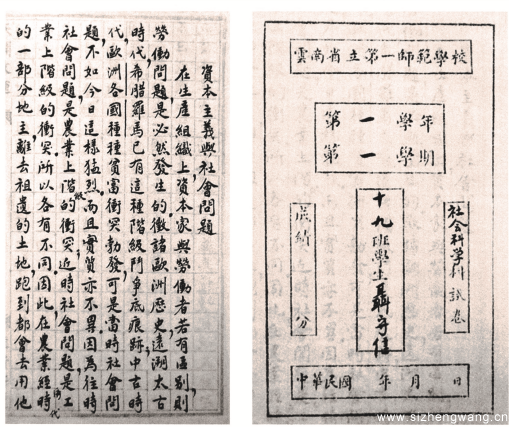 雲南省立第一師範學校
第一學年
第一學期
社会科學科試卷
十九班學生聶守信
成績 分
中華民國 年 月 日
資本主義與社會問題
在生產組織上資本家與勞働者若有區别,則
勞働問題是必然發生的.徵諸歐洲歷史,遠溯太古
時代,希腊羅馬已有這種階級鬥爭底痕跡.中古時
代,歐洲各國種種貧富衝突勃發.可是當時社會問
題,不如今日這樣猛烈,而且實質亦不異.因為往時
社會問題,是農業上階級的衝突,近時社會問題,是工
業上階級的衝突.所以各有不同.因此在農業經濟時代
的一部分地主離去祖遺的土地,跑到都會去用他
www.sizhengwang.cn